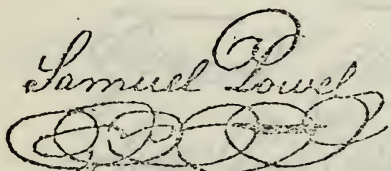 Samuel Powel